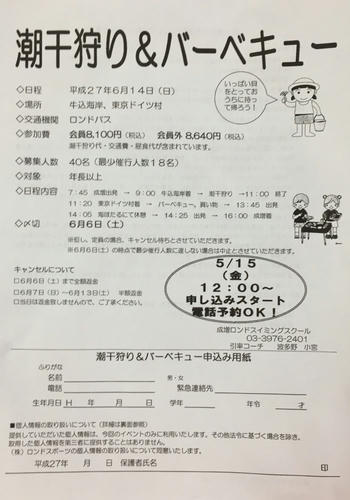 潮干狩り＆バーベキュー
いっぱい貝
をとってお
うちに持っ
て帰ろう！
◇日程 平成27年6月14日（日）
◇場所 牛込海岸、東京ドイツ村
◇交通機関 ロンドバス
◇参加費 会員8,100円（税込） 会員外 8,640円（税込）
潮干狩り代・交通費・昼食代が含まれています。
◇募集人数 40名（最少催行人数18名）
◇対象 年長以上
◇日程内容 7：45 成増出発 → 9：00 牛込海岸着 → 潮干狩り → 11：00 終了
11：20 東京ドイツ村着 → バーベキュー、買い物 → 13：45 出発
14：05 海ほたるにて休憩 → 14：25 出発 → 16：00 成増着
◇〆切 6月6日（土）
※但し、定員の場合、キャンセル待ちとさせていただきます。
※6月6日（土）の時点で最少催行人数に達しない場合は中止とさせていただきます。
キャンセルについて
□6月6日（土）まで全額返金
□6月7日（日）～6月13日（土） 半額返金
□当日は返金致しませんので、ご了承ください。
5/15
（金）
12：00～
申し込みスタート
電話予約OK！
成増ロンドスイミングスクール
03-3976-2401
引率コーチ 波多野 小宮
潮干狩り＆バーベキュー申込み用紙
ふりがな
名前 男・女
電話 緊急連絡先
生年月日 H 年 月 日 学年 年令 才
■個人情報の取り扱いについて（詳細は裏面参照）
提供していただいた個人情報は、今回のイベントのみに利用いたします。その他法令に基づく場合を除き、
取得した個人情報を第三者に提供することはありません。
（株）ロンドスポーツの個人情報の取り扱いについて同意いたします。
平成27年 月 日 保護者氏名 印